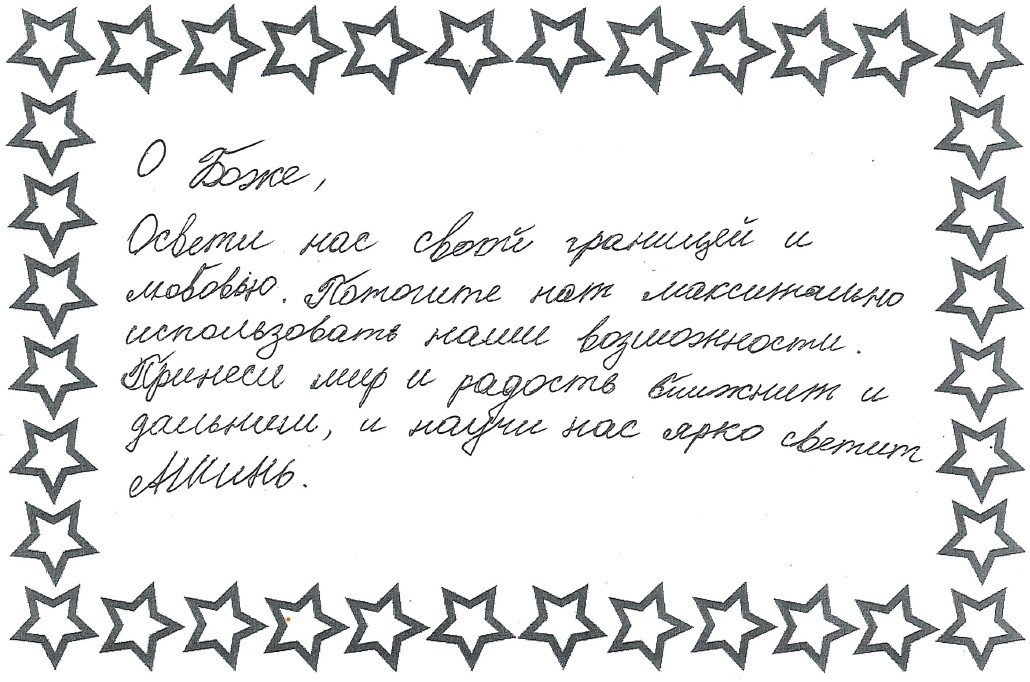 О Боже,
Освети нас своей границей и
любовью. Помогите нам максимально
использовать наши возможности.
Принеси мир и радость ближним и
дальним, и научи нас ярко светит
Аминь.